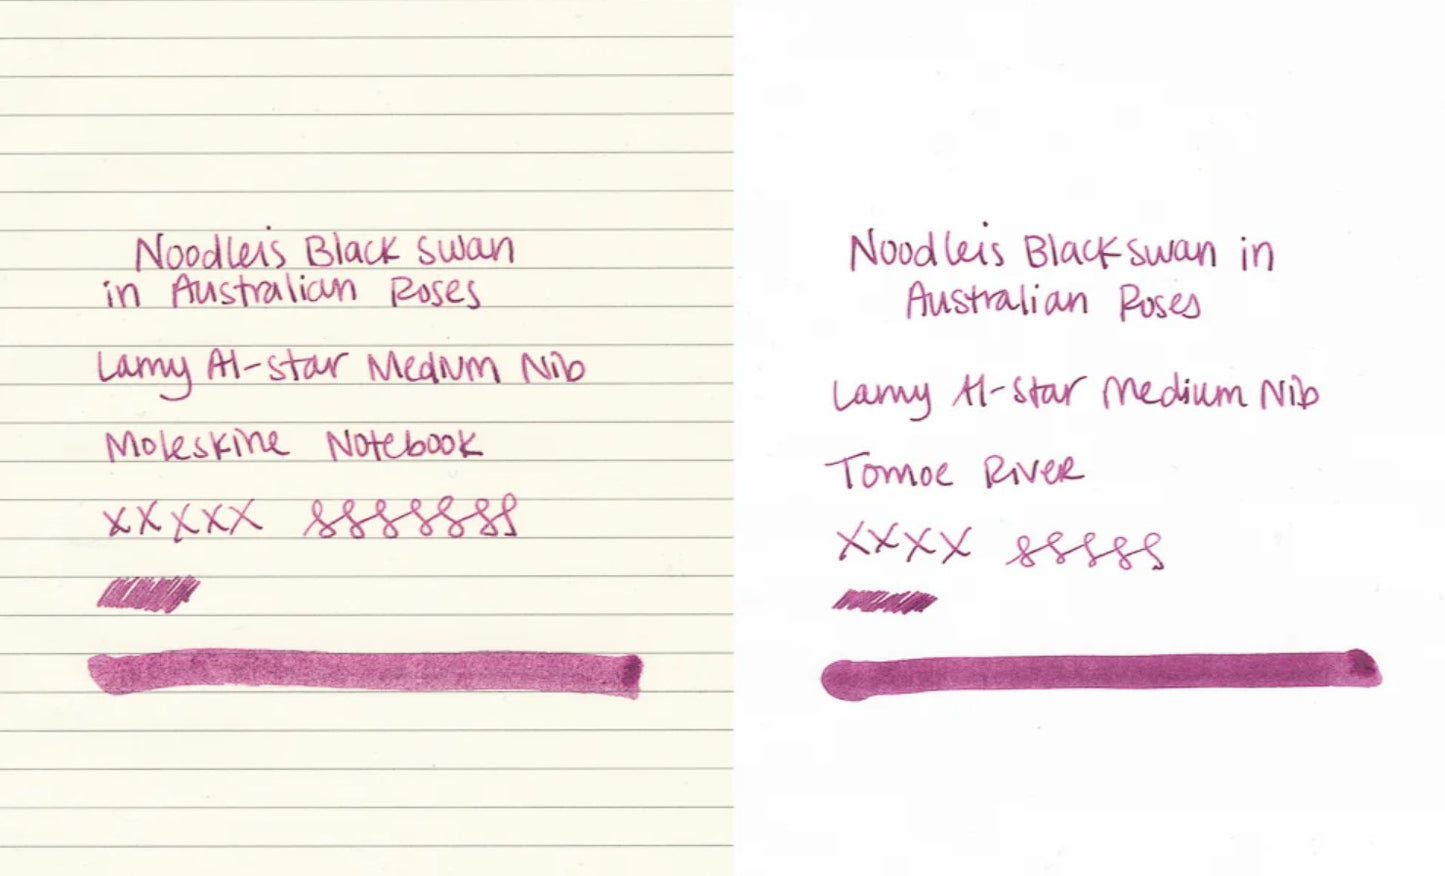 Noodler's Black Swan
in Australian Roses
Lamy Al-star Medium Nib
Moleskine Notebook
xxxxx 8888888
Noodler's Black Swan in
Australian Roses
Lamy Al-star Medium Nib
Tomoe River
xxxx 88888